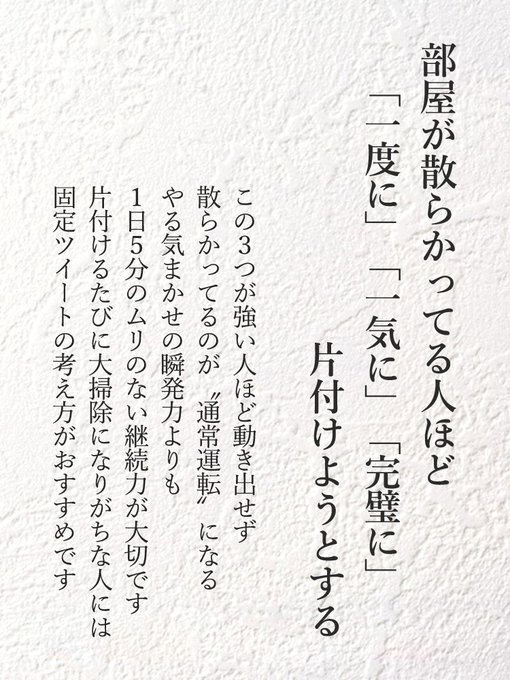 部屋が散らかってる人ほど
「一度に」「一気に」「完璧に」
片付けようとする
この3つが強い人ほど動き出せず
散らかってるのが〝通常運転〟になる
やる気まかせの瞬発力よりも
1日5分のムリのない継続力が大切です
片付けるたびに大掃除になりがちな人には
固定ツイートの考え方がおすすめです